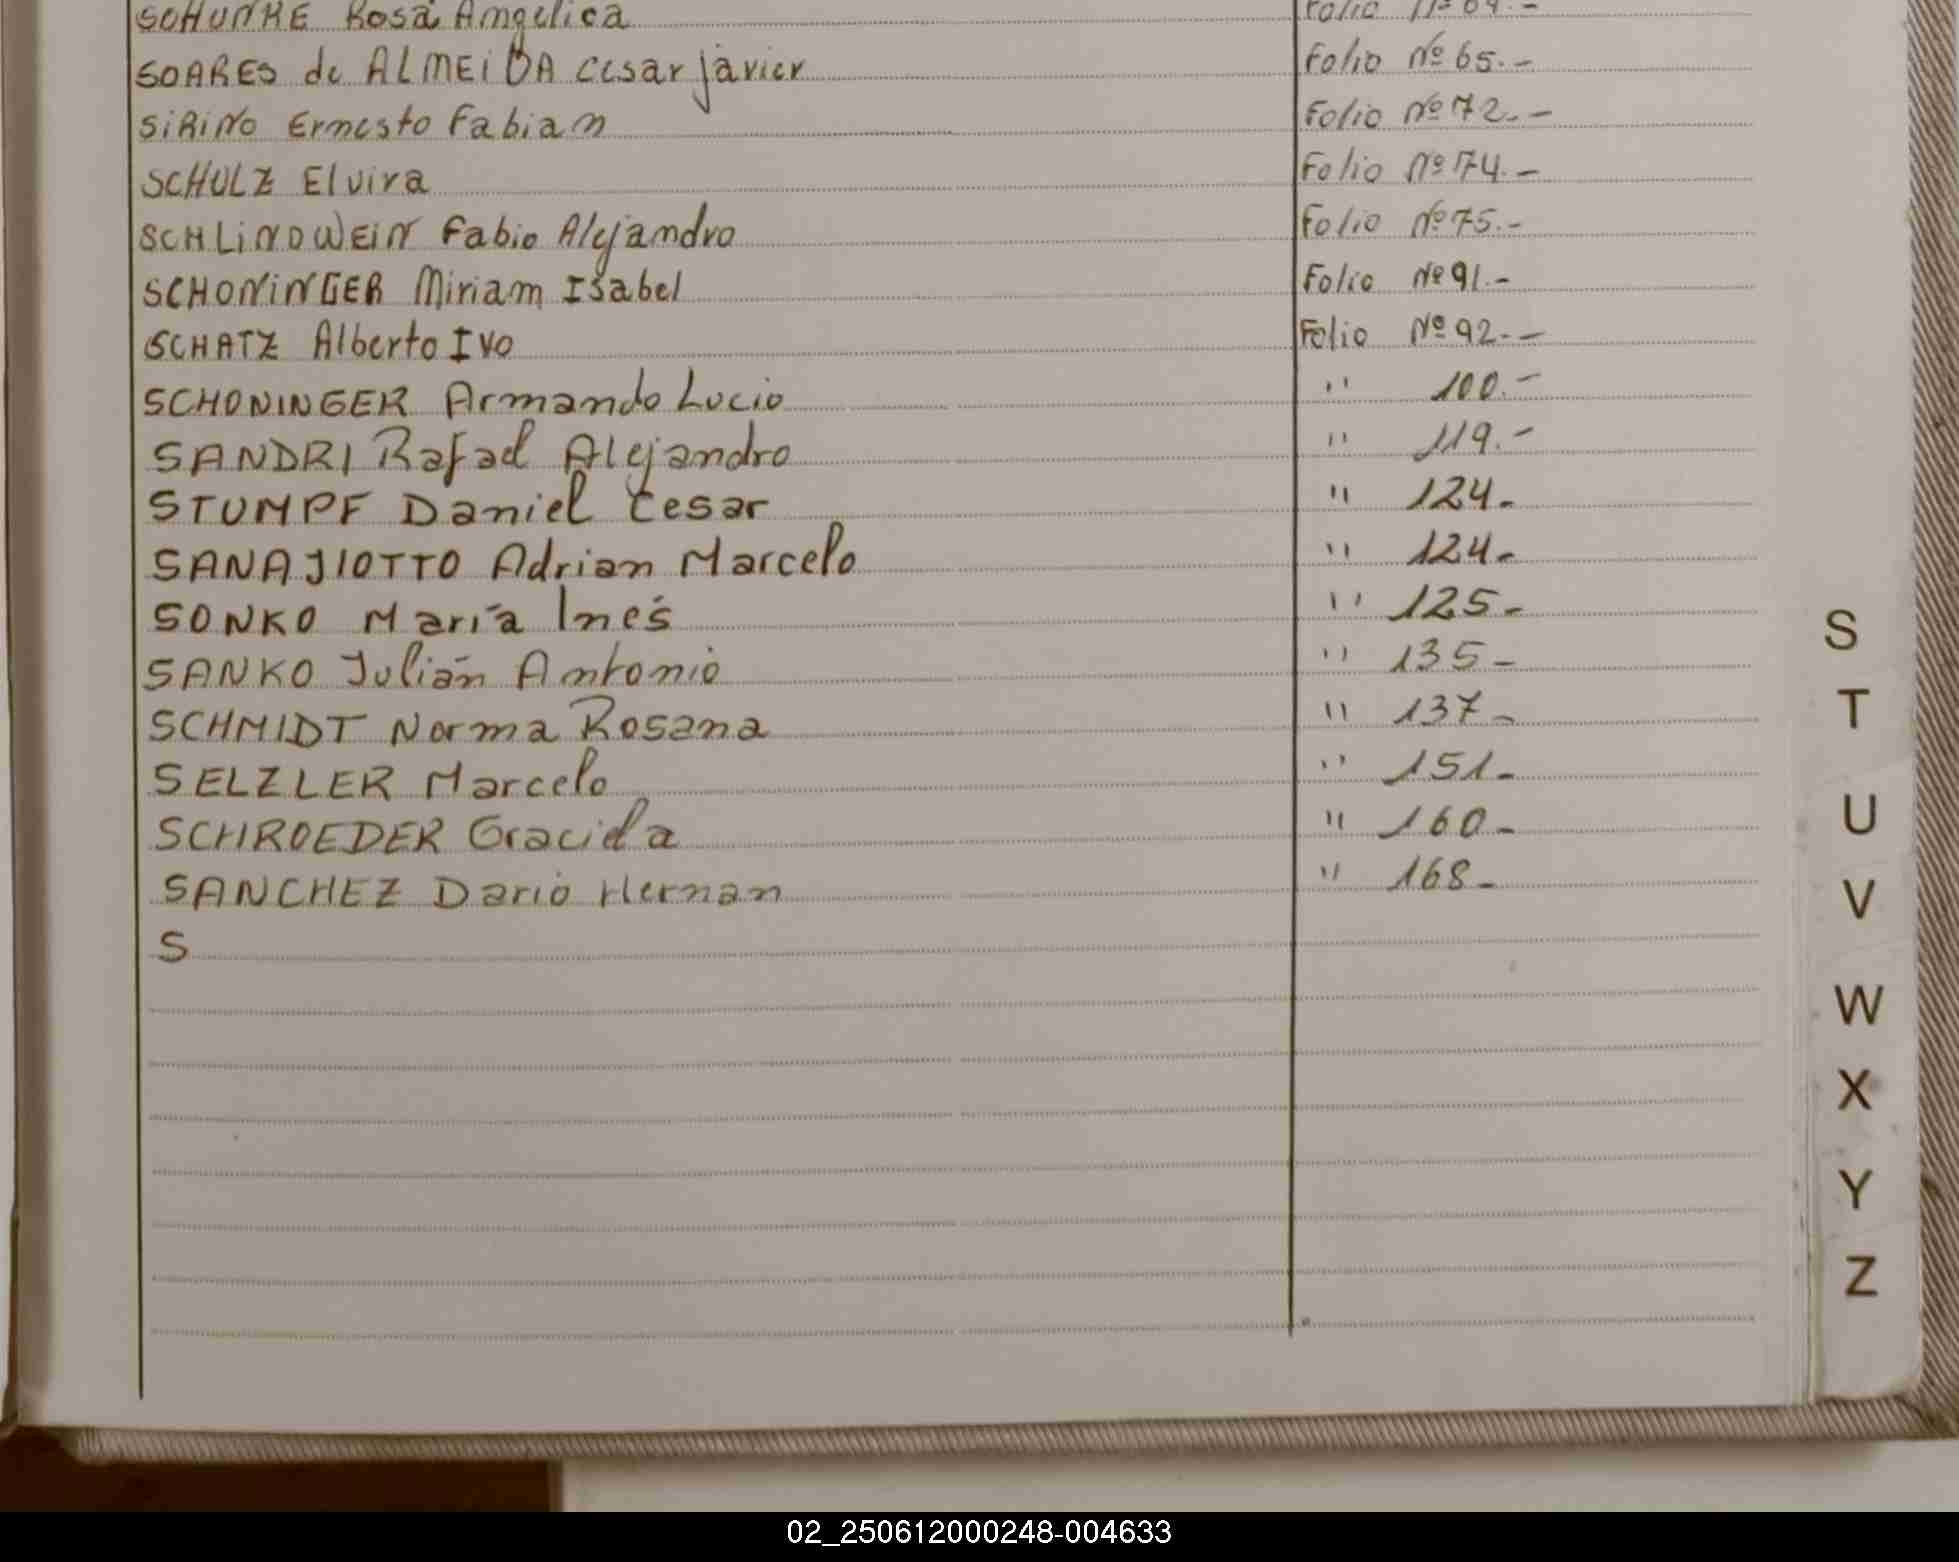 SCHUNKE Rosa Angelica Folio Nº 64.-
SOARES de ALMEIDA Cesar javier Folio Nº 65.-
SIRINO Ernesto Fabian Folio Nº 72.-
SCHULZ Elvira Folio Nº 74.-
SCHLINDWEIN Fabio Alejandro Folio Nº 75.-
SCHONINGER Miriam Isabel Folio Nº 91.-
SCHATZ Alberto Ivo Folio Nº 92.-
SCHONINGER Armando Lucio " 100.-
SANDRI Rafael Alejandro " 119.-
STUMPF Daniel Cesar " 124-
SANAJIOTTO Adrian Marcelo " 124-
SONKO María Inés " 125-
SANKO Julián Antonio " 135-
SCHMIDT Norma Rosana " 137-
SELZLER Marcelo " 151-
SCHROEDER Graciela " 160-
SANCHEZ Dario Hernan " 168-
S
S
T
U
V
W
X
Y
Z
02_250612000248-004633